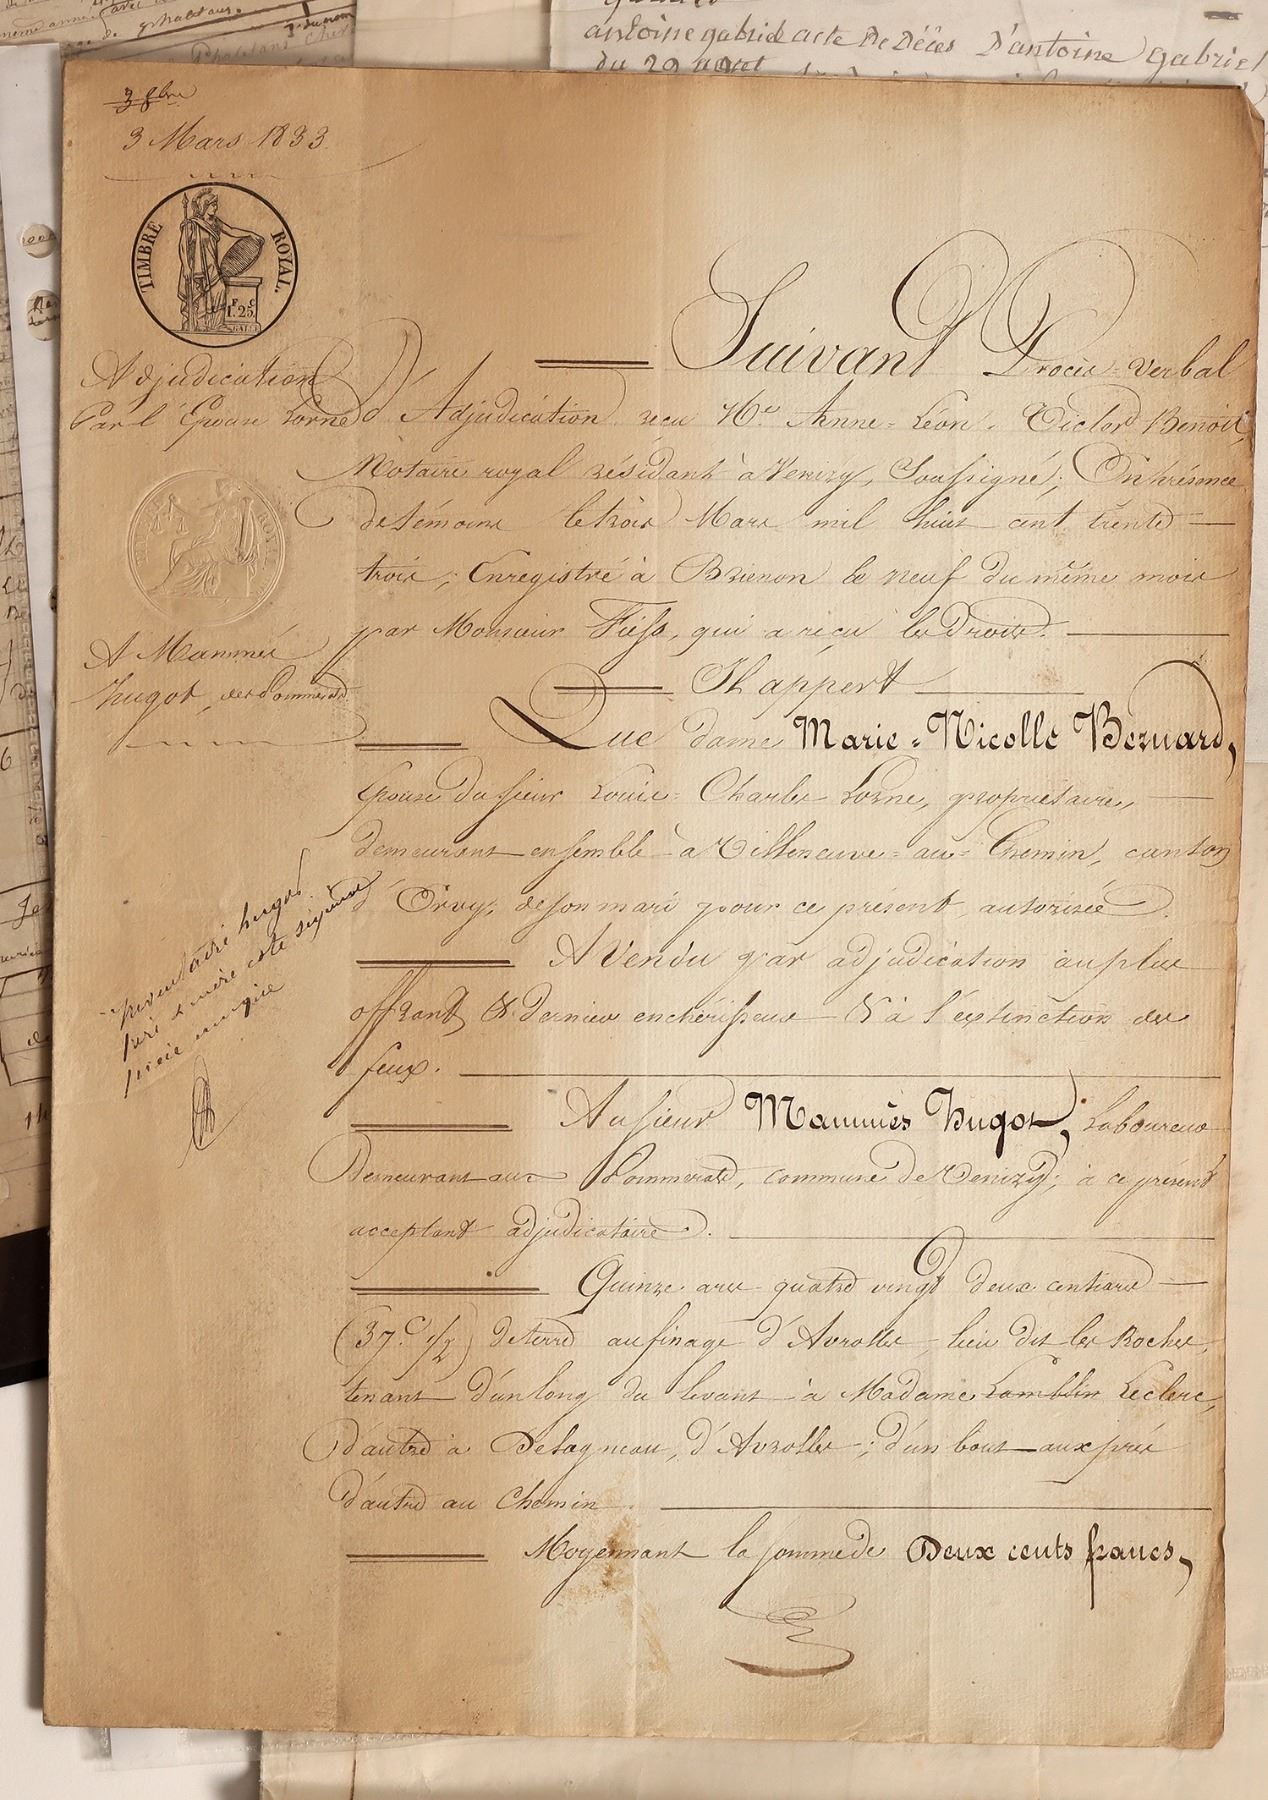 antoine gabriel acte de Décès D'antoine gabriel
du 29 aout
3 8bre
3 Mars 1833
TIMBRE ROYAL.
F C
1.25
Adjudication
Par l'Epouse Lorne
A Mammès
hugot, des Pommerats
inventorié hugot
père & mère cote sixième
pièce unique
Suivant Procès-verbal
d'Adjudication reçu Me. Anne-Léon-Victor Benoit,
Notaire royal résidant à Venizy, Soussigné; En présence
de témoins le trois Mars mil huit cent trente
trois; Enregistré à Brienon le neuf du même mois
par Monsieur Fiess, qui a reçu les Droits.
Il appert
Que dame Marie-Nicolle Bernard,
Epouse du sieur Louis-Charles Lorne, propriétaire,
demeurant ensemble à Villeneuve-au-Chemin, canton
d'Ervy, de son mari pour ce présent autorisée.
A Vendu par adjudication au plus
offrant & dernier enchérisseur & à l'extinction des
feux.
Au sieur Mammès Hugot, Laboureur
Demeurant aux Pommerats, commune de Venizy; à ce présent
acceptant adjudicataire.
Quinze ares quatre vingt deux centiares
(37.c 1/2) de terre au finage d'Avrolles, lieu dit les Roches,
tenant d'un long du levant à Madame Lamblin Leclerc,
d'autre à Delagneau, d'Avrolles; d'un bout aux prés
d'autre au Chemin.
Moyennant la somme de Deux cents francs,